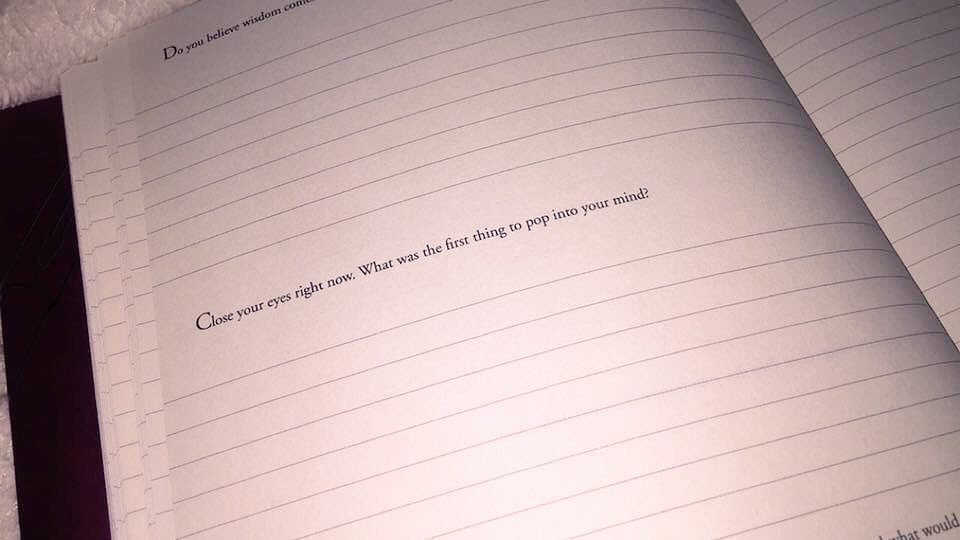 Do you believe wisdom
Close your eyes right now. What was the first thing to pop into your mind?
what would